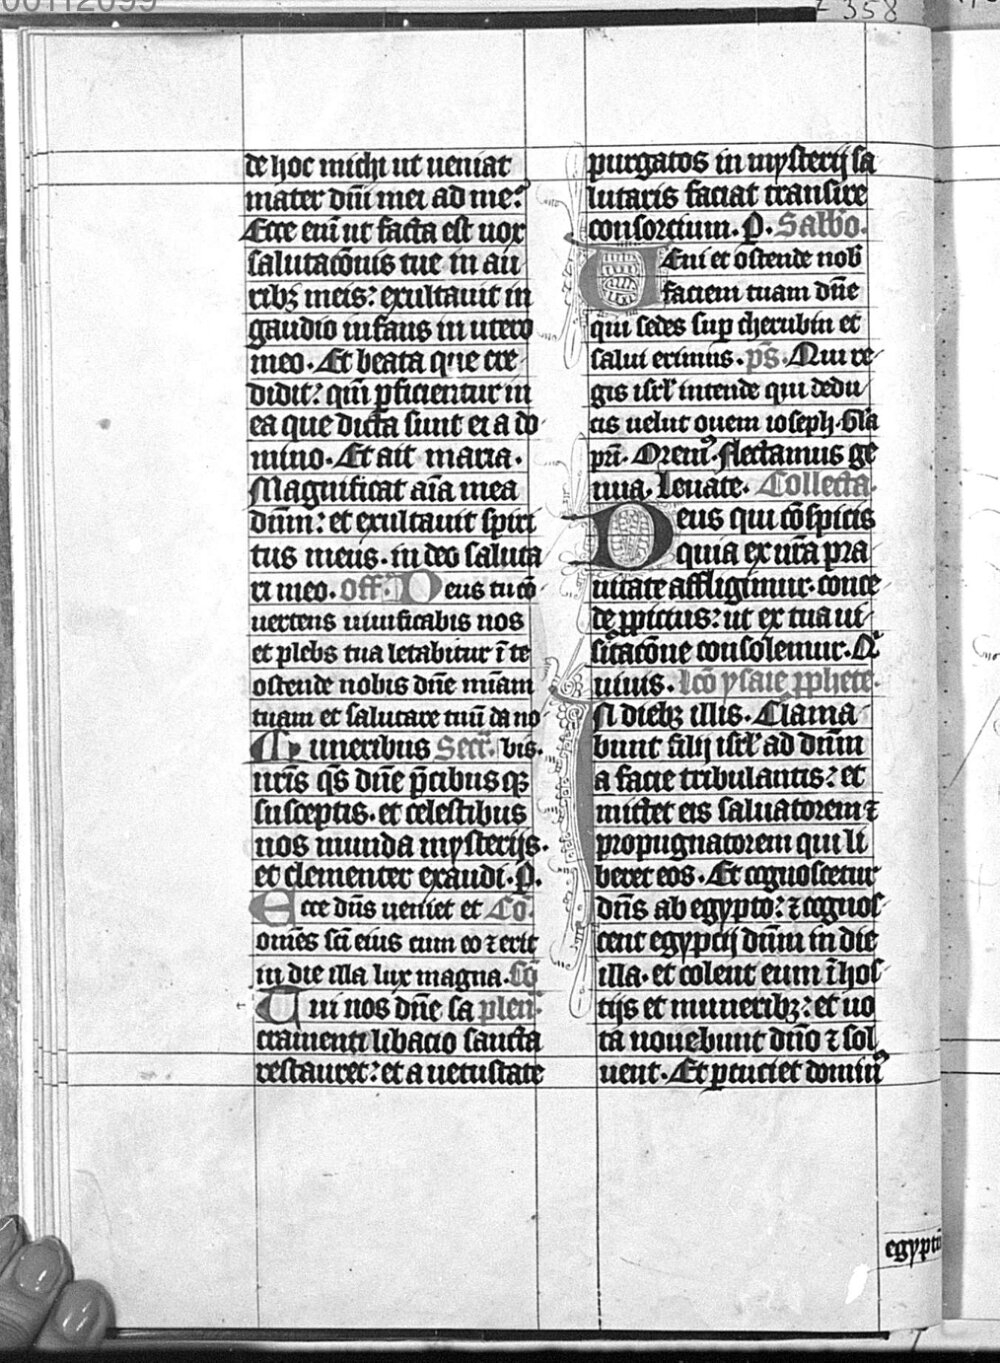 00112099
358
de hoc michi ut ueniat
mater dn̄i mei ad me?
Ecce eni̅ ut facta est uox
salutac̅o̅nis tue in au
ribꝫ meis: exultauit in
gaudio infans in utero
meo. Et beata que cre
didit: qm̄ ꝑficientur in
ea que dicta sunt ei a do
mino. Et ait maria.
Magnificat ai̅a mea
dn̄m: et exultauit spiri
tus meus. in deo saluta
ri meo. Off. Deus tu co̅
uertens uiuificabis nos
et plebs tua letabitur i̅ te
ostende nobis dn̄e mi̅am
tuam et salutare tuu̅ da no
Muneribus Secr̅. bis.
nr̅is q̅s dn̄e p̅cibus qꝫ
susceptis. et celestibus
nos munda mysterijs.
et clementer exaudi. P.
Ecce dn̄s ueniet et Co̅.
om̅es sc̅i eius cum eo ⁊ erit
in die illa lux magna. Co̅
Qui nos dn̄e sa plen̅.
cramenti libacio sancta
restauret: et a uetustate
purgatos in mysterij sa
lutaris faciat transire
consorcium. P. Sabb̅o.
Ueni et ostende nob̅
faciem tuam dn̄e
qui sedes sup̲ cherubin et
salui erimus. ps̅. Qui re
gis isrl̅ intende qui dedu
cis uelut ouem ioseph. Gl̅a
pr̅i. Orem̅⁹. flectamus ge
nua. leuate. Collecta.
Deus qui co̅spicis
quia ex nr̅a pra
uitate affligimur. conce
de ꝓpicius: ut ex tua ui
sitac̅o̅ne consolemur. Q
uiuis. lc̅o ysaie ꝓphete.
In diebꝫ illis. Clama
bunt filij isrl̅ ad dn̄m
a facie tribulantis: et
mittet eis saluatorem ⁊
propugnatorem qui li
beret eos. Et cognoscetur
dn̄s ab egypto: ⁊ cognos
cent egyptij dn̄m in die
illa. et colent eum i̅ hos
tijs et muneribꝫ: et uo
ta uouebunt dn̄o ⁊ sol
uent. Et ꝑcuciet domin⁹
egyptu̅